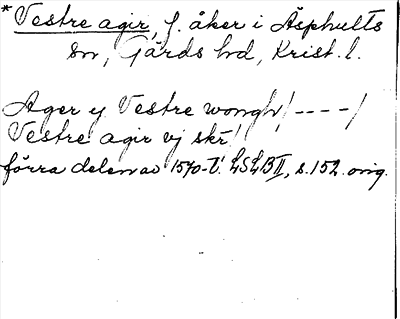 * Vestre agir, f. åker i Äsphults
sn, Gärds hd, Krist. l.
Ager y Vestre wongh/----/
Vestre agir vj skr!
förra delen av 1570-t. LSLB II, s. 152. orig.